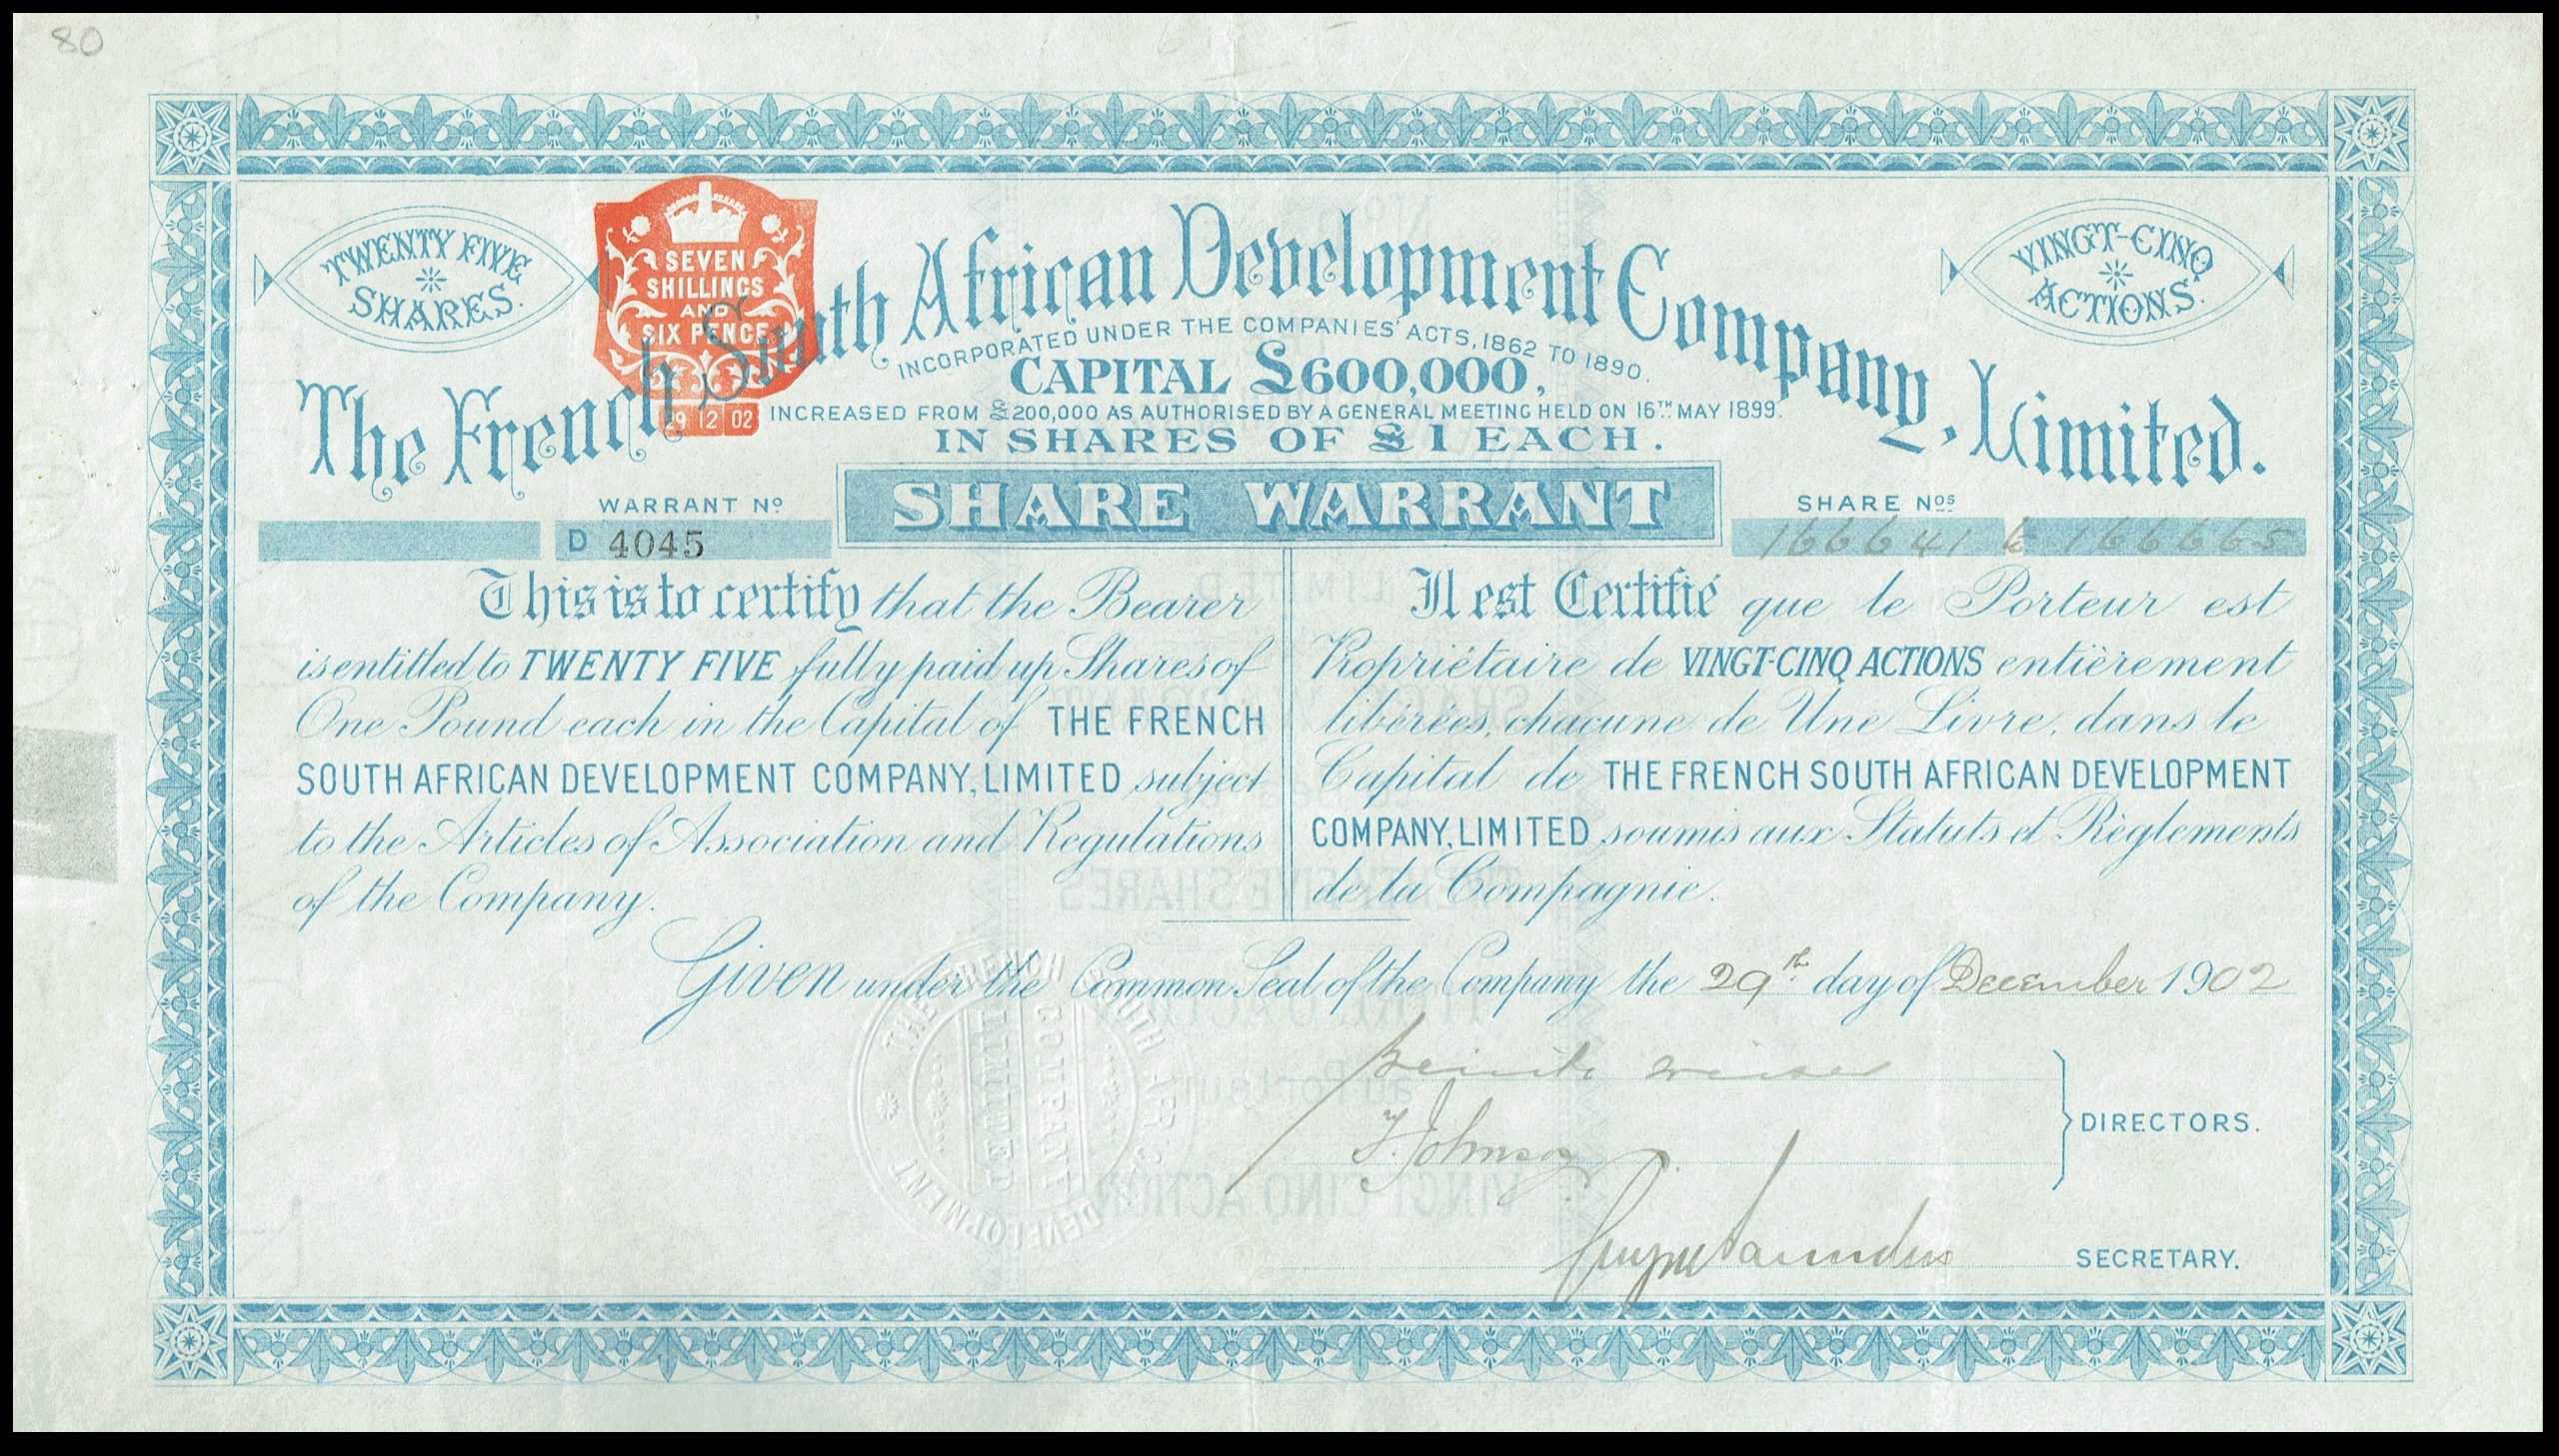 80
TWENTY FIVE
SHARES.
SEVEN
SHILLINGS
AND
SIX PENCE
29 12 02
VINGT-CINQ
ACTIONS.
The French South African Development Company, Limited.
INCORPORATED UNDER THE COMPANIES' ACTS, 1862 TO 1890.
CAPITAL £600,000,
INCREASED FROM £200,000 AS AUTHORISED BY A GENERAL MEETING HELD ON 16TH MAY 1899.
IN SHARES OF £1 EACH.
SHARE WARRANT
WARRANT No
D 4045
SHARE Nos
166641 to 166665
This is to certify that the Bearer
is entitled to TWENTY FIVE fully paid up Shares of
One Pound each in the Capital of THE FRENCH
SOUTH AFRICAN DEVELOPMENT COMPANY, LIMITED subject
to the Articles of Association and Regulations
of the Company.
Il est Certifié que le Porteur est
Propriétaire de VINGT-CINQ ACTIONS entièrement
libérées, chacune de Une Livre, dans le
Capital de THE FRENCH SOUTH AFRICAN DEVELOPMENT
COMPANY, LIMITED soumis aux Statuts et Règlements
de la Compagnie.
Given under the Common Seal of the Company the 29th day of December 1902
THE FRENCH SOUTH AFRICAN DEVELOPMENT
COMPANY
LIMITED
F. Johnson
DIRECTORS.
Saunders
SECRETARY.